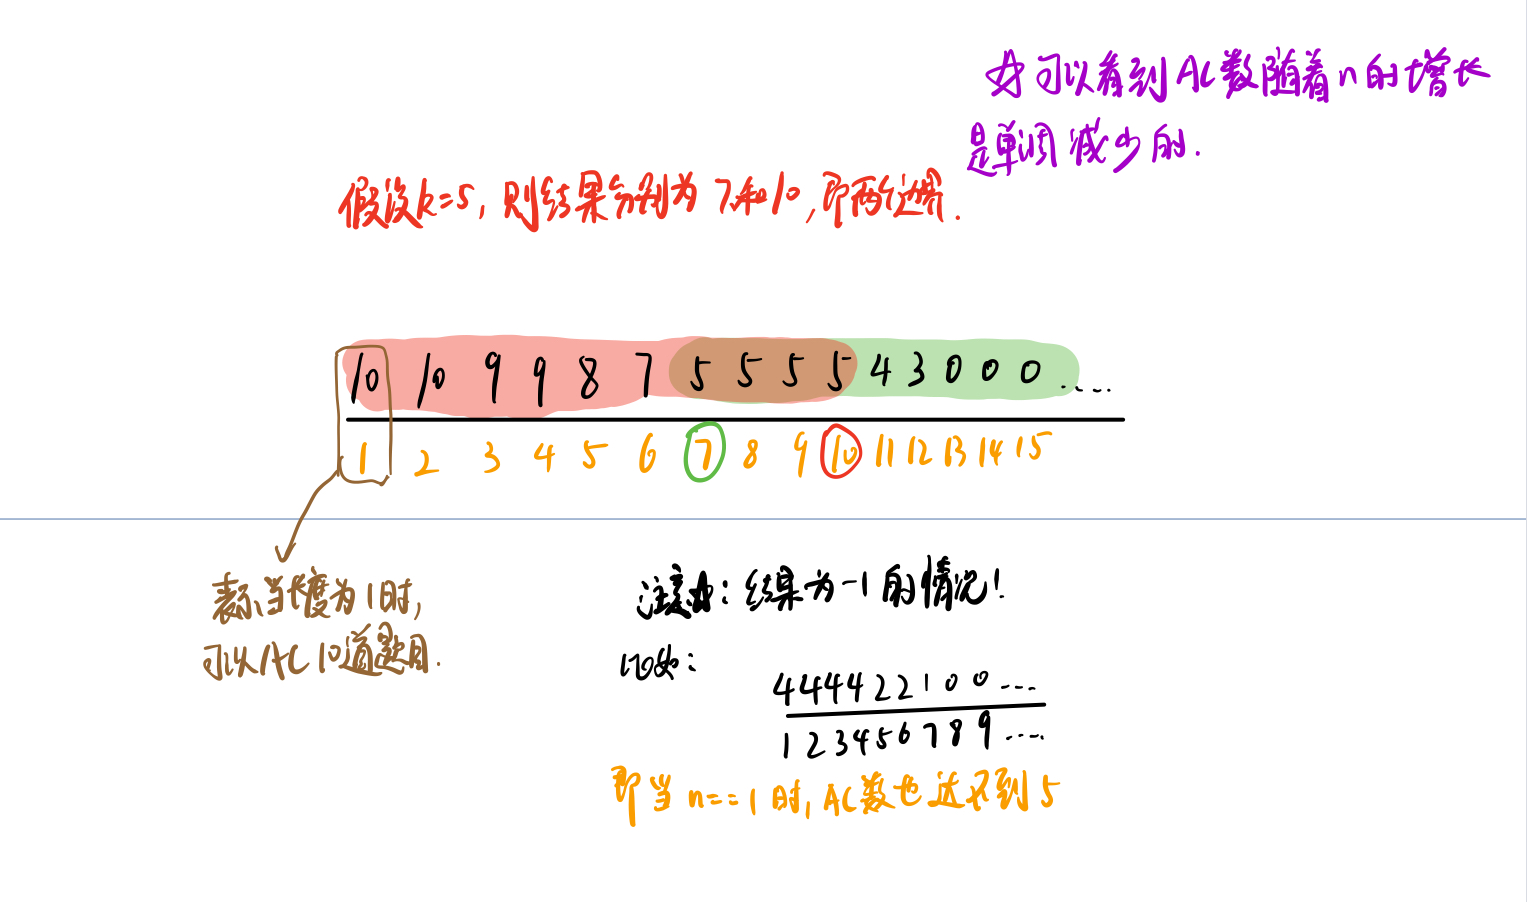 ☆可以看到AC数随着n的增长
是单调减少的.
假设k=5, 则结果分别为 7和10, 即两个边界.
10 10 9 9 8 7 5 5 5 5 4 3 0 0 0 ....
1 2 3 4 5 6 7 8 9 10 11 12 13 14 15
表示当长度为1时,
可以AC10道题目.
注意☆: 结果为-1的情况!
例如:
4 4 4 4 2 2 1 0 0 ....
1 2 3 4 5 6 7 8 9 ....
即当 n==1时, AC数也达不到5